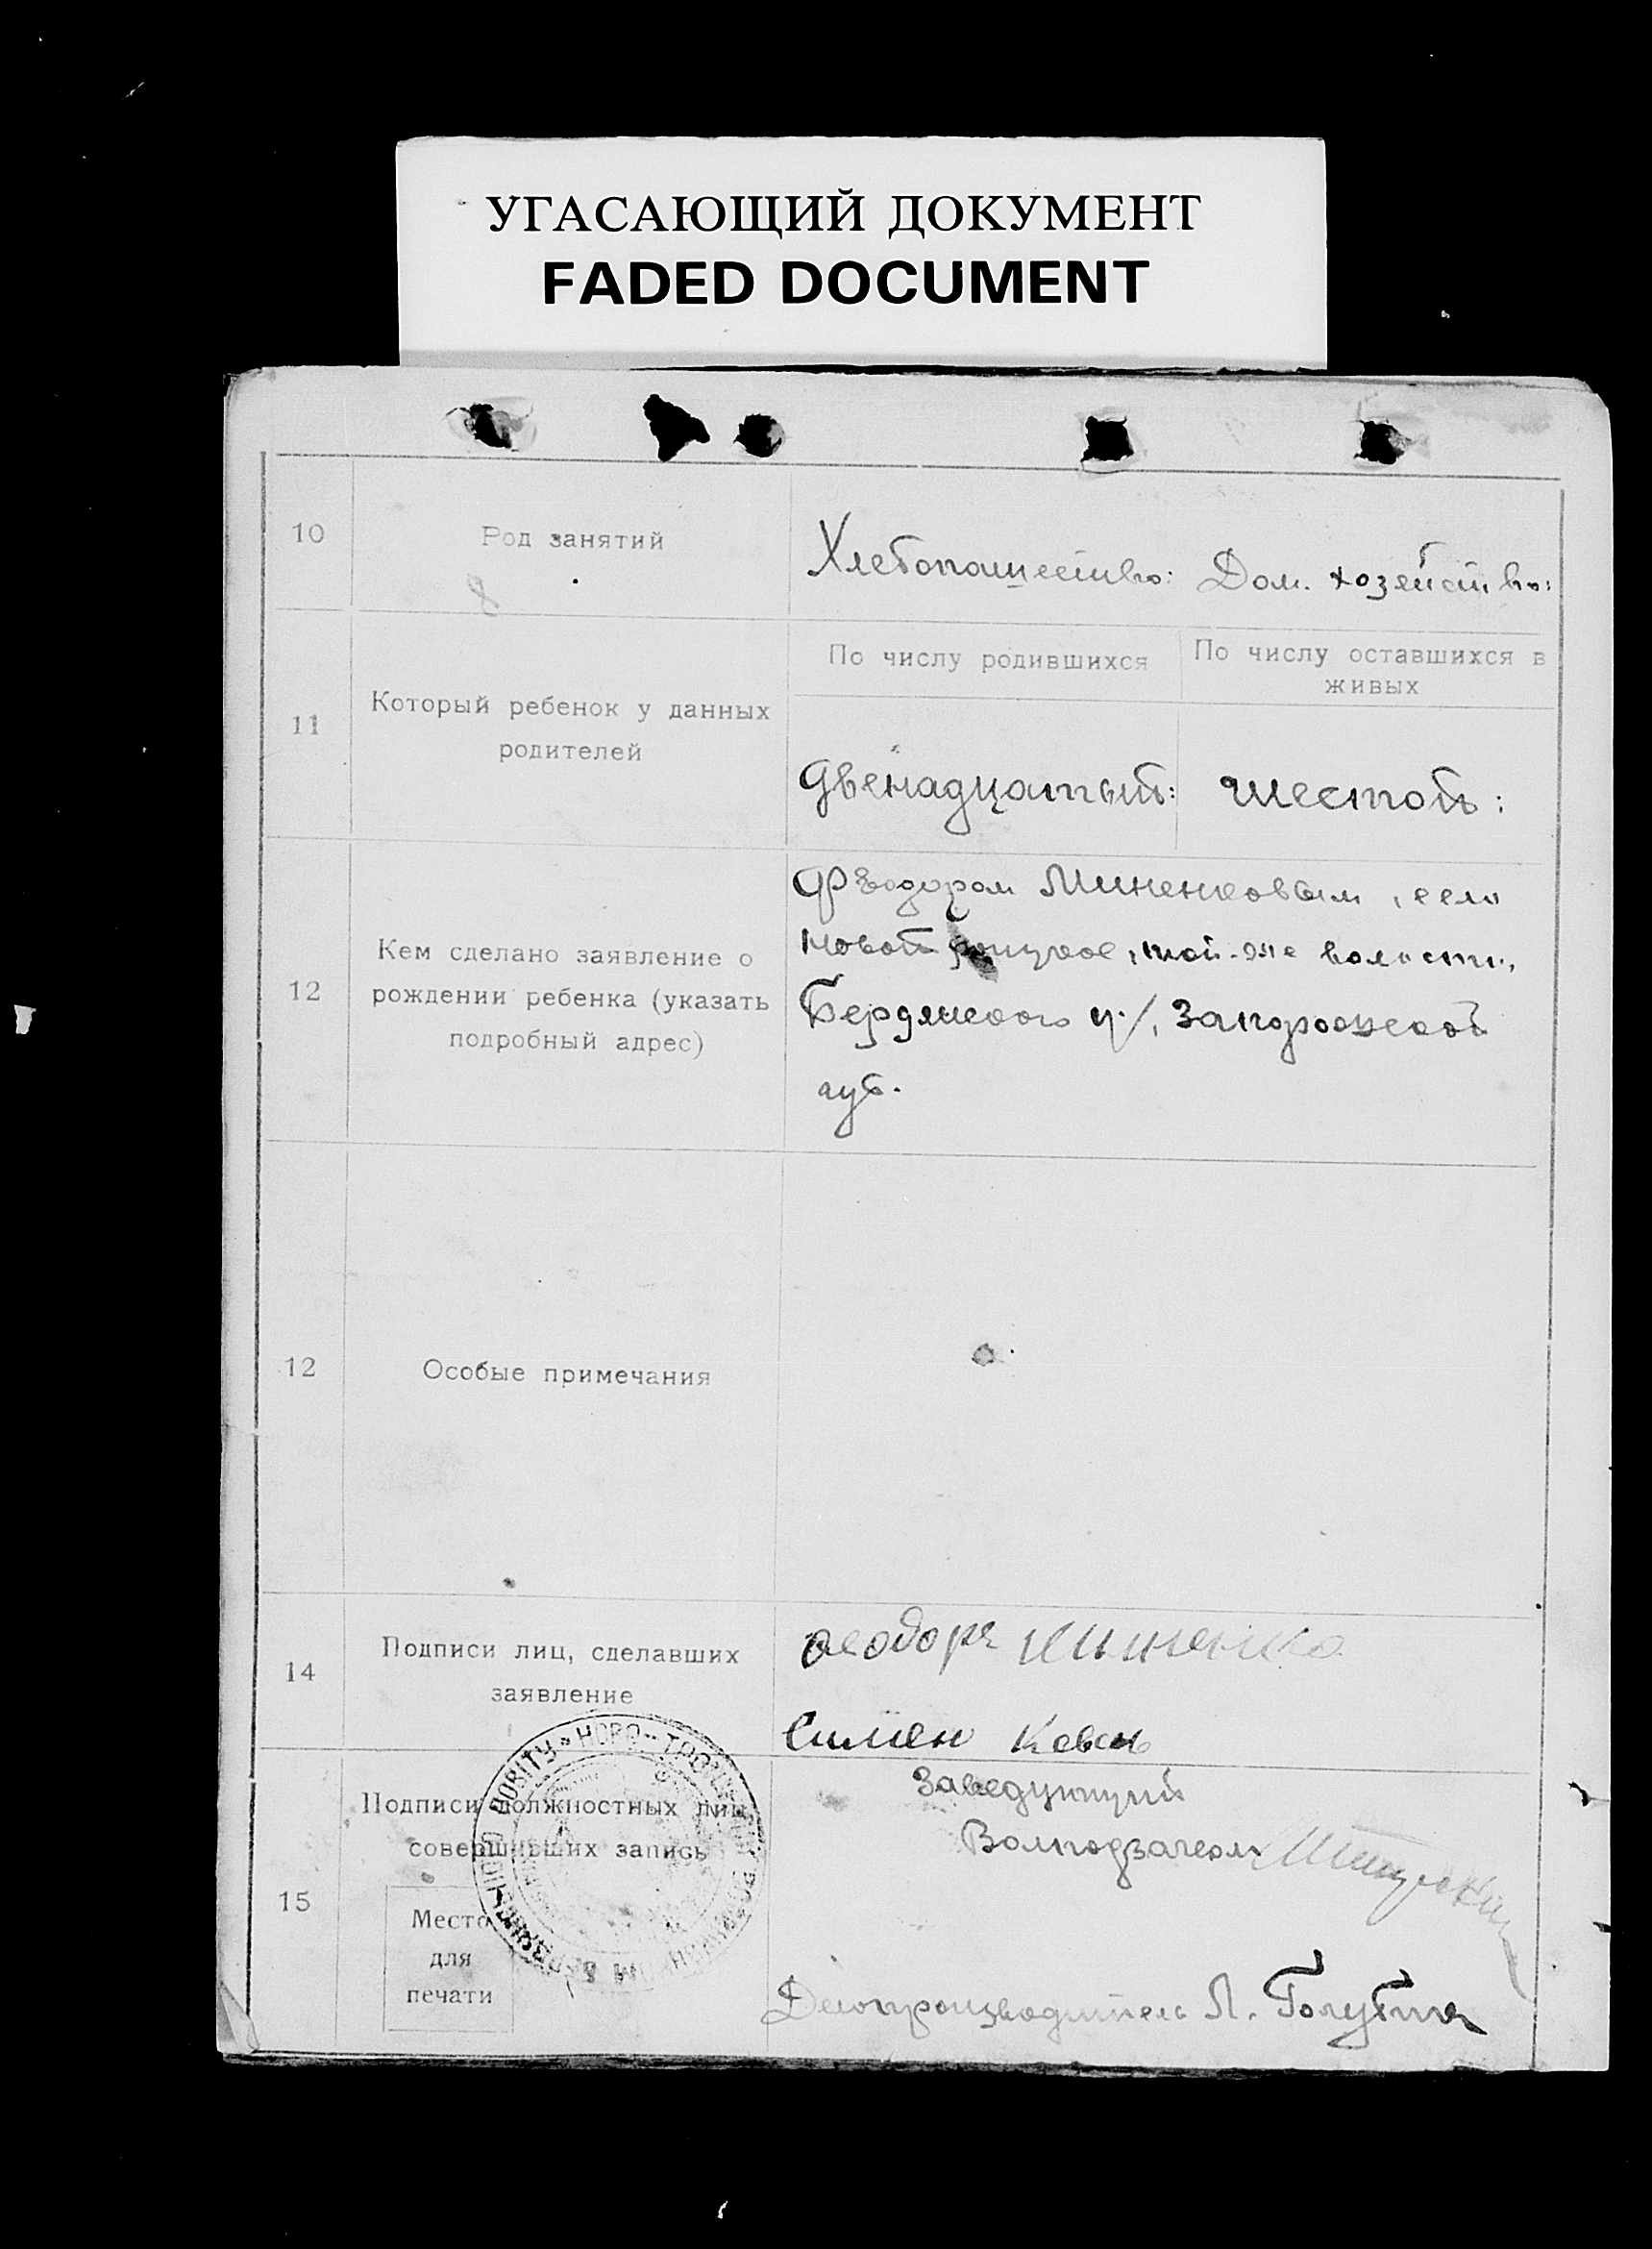 УГАСАЮЩИЙ ДОКУМЕНТ
FADED DOCUMENT
10
Род занятий
Хлебопашество: Дом. хозяйство:
8
11
Который ребенок у данных
родителей
По числу родившихся
По числу оставшихся в
живых
двенадцатый:
шестой:
12
Кем сделано заявление о
рождении ребенка (указать
подробный адрес)
Феодором Миненковым, село
Ново, той-же волости,
Бердянского у/, Запорожской
губ.
12
Особые примечания
14
Подписи лиц, сделавших
заявление
Феодоръ Миненко
Симен
15
Подписи должностных лиц,
совершивших запись
Место
для
печати
Заведующий
Волподзагсом
Делопроизводитель Л. Голубь